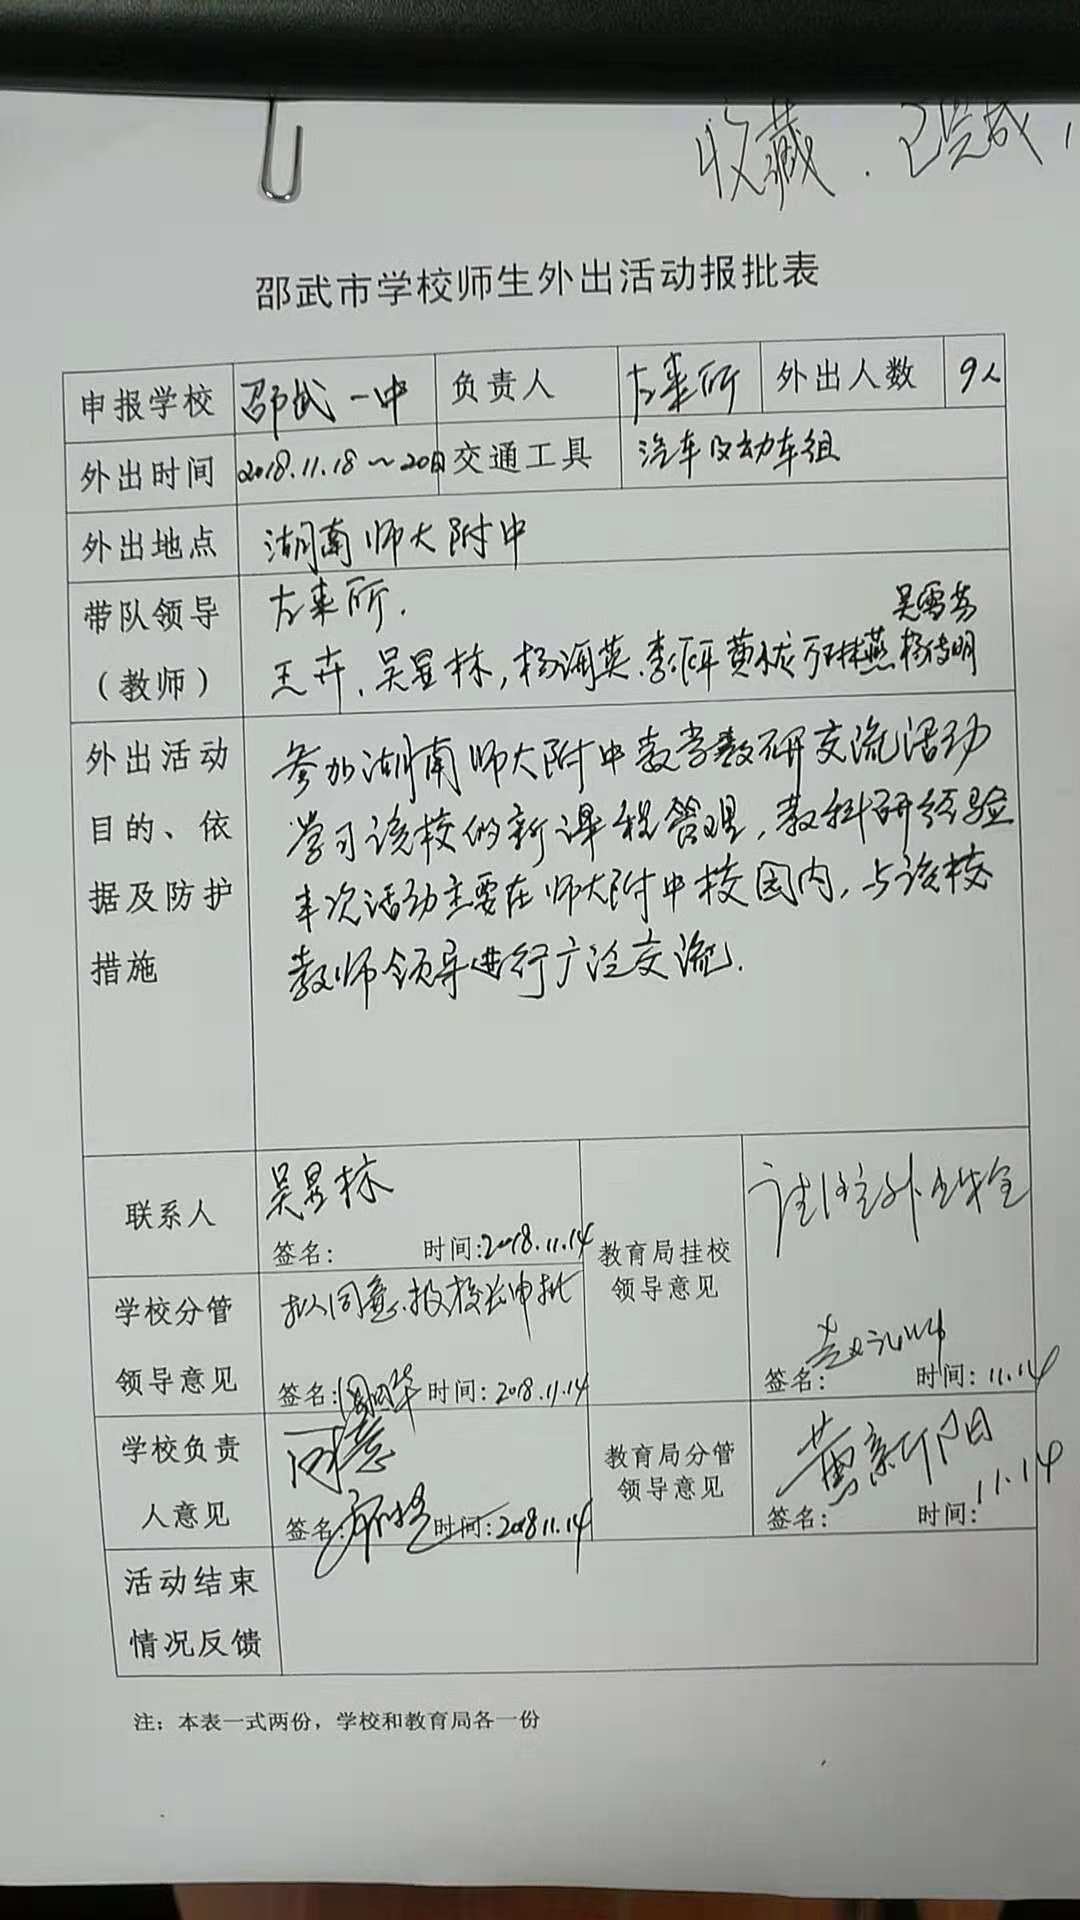 收藏.已完成,
邵武市学校师生外出活动报批表
申报学校 邵武一中 负责人 左来所 外出人数 9人
外出时间 2018.11.18～20日 交通工具 汽车及动车组
外出地点 湖南师大附中
带队领导 左来所.
吴雪芳
（教师） 王卉.吴昱林,杨海英.李 黄 燕 杨传明
外出活动 参加湖南师大附中教学教研交流活动
目的、依 学习该校的新课程管理,教科研经验
据及防护 本次活动主要在师大附中校园内,与该校
措施 教师领导进行广泛交流.
联系人 吴昱林
签名: 时间:2018.11.14
教育局挂校
领导意见
请注意外出安全
签名: 时间: 11.14
学校分管 拟同意.报校长审批
领导意见 签名: 时间: 2018.11.14
学校负责 同意
人意见 签名: 时间: 2018 11.14
教育局分管
领导意见
黄新阳
签名: 时间: 11.14
活动结束
情况反馈
注：本表一式两份，学校和教育局各一份